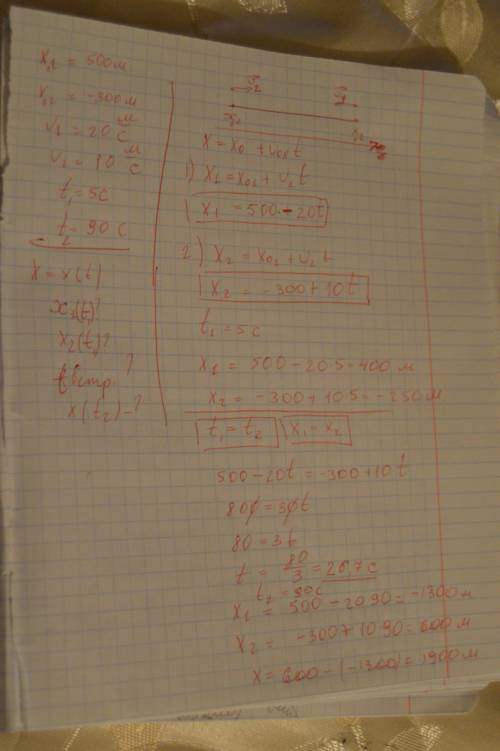 x₀₁ = 500м
x₀₂ = -300м
v₁ = 20 м/с
v₂ = 10 м/с
t₁ = 5с
t₂ = 90 с
x = x(t)
x₁(t₁)?
x₂(t₁)?
tвстр. ?
x(t₂) - ?
x = x₀ + v₀ₓt
1) x₁ = x₀₁ + v₁t
x₁ = 500 - 20t
2) x₂ = x₀₂ + v₂t
x₂ = -300 + 10t
t₁ = 5с
x₁ = 500 - 20·5 = 400 м
x₂ = -300 + 10·5 = -250м
t₁ = t₂ x₁ = x₂
500 - 20t = -300 + 10t
800 = 30t
80 = 3t
t = 80/3 = 26,7 с
t₂ = 90с
x₁ = 500 - 20·90 = -1300м
x₂ = -300 + 10·90 = 600м
x = 600 - (-1300) = 1900м